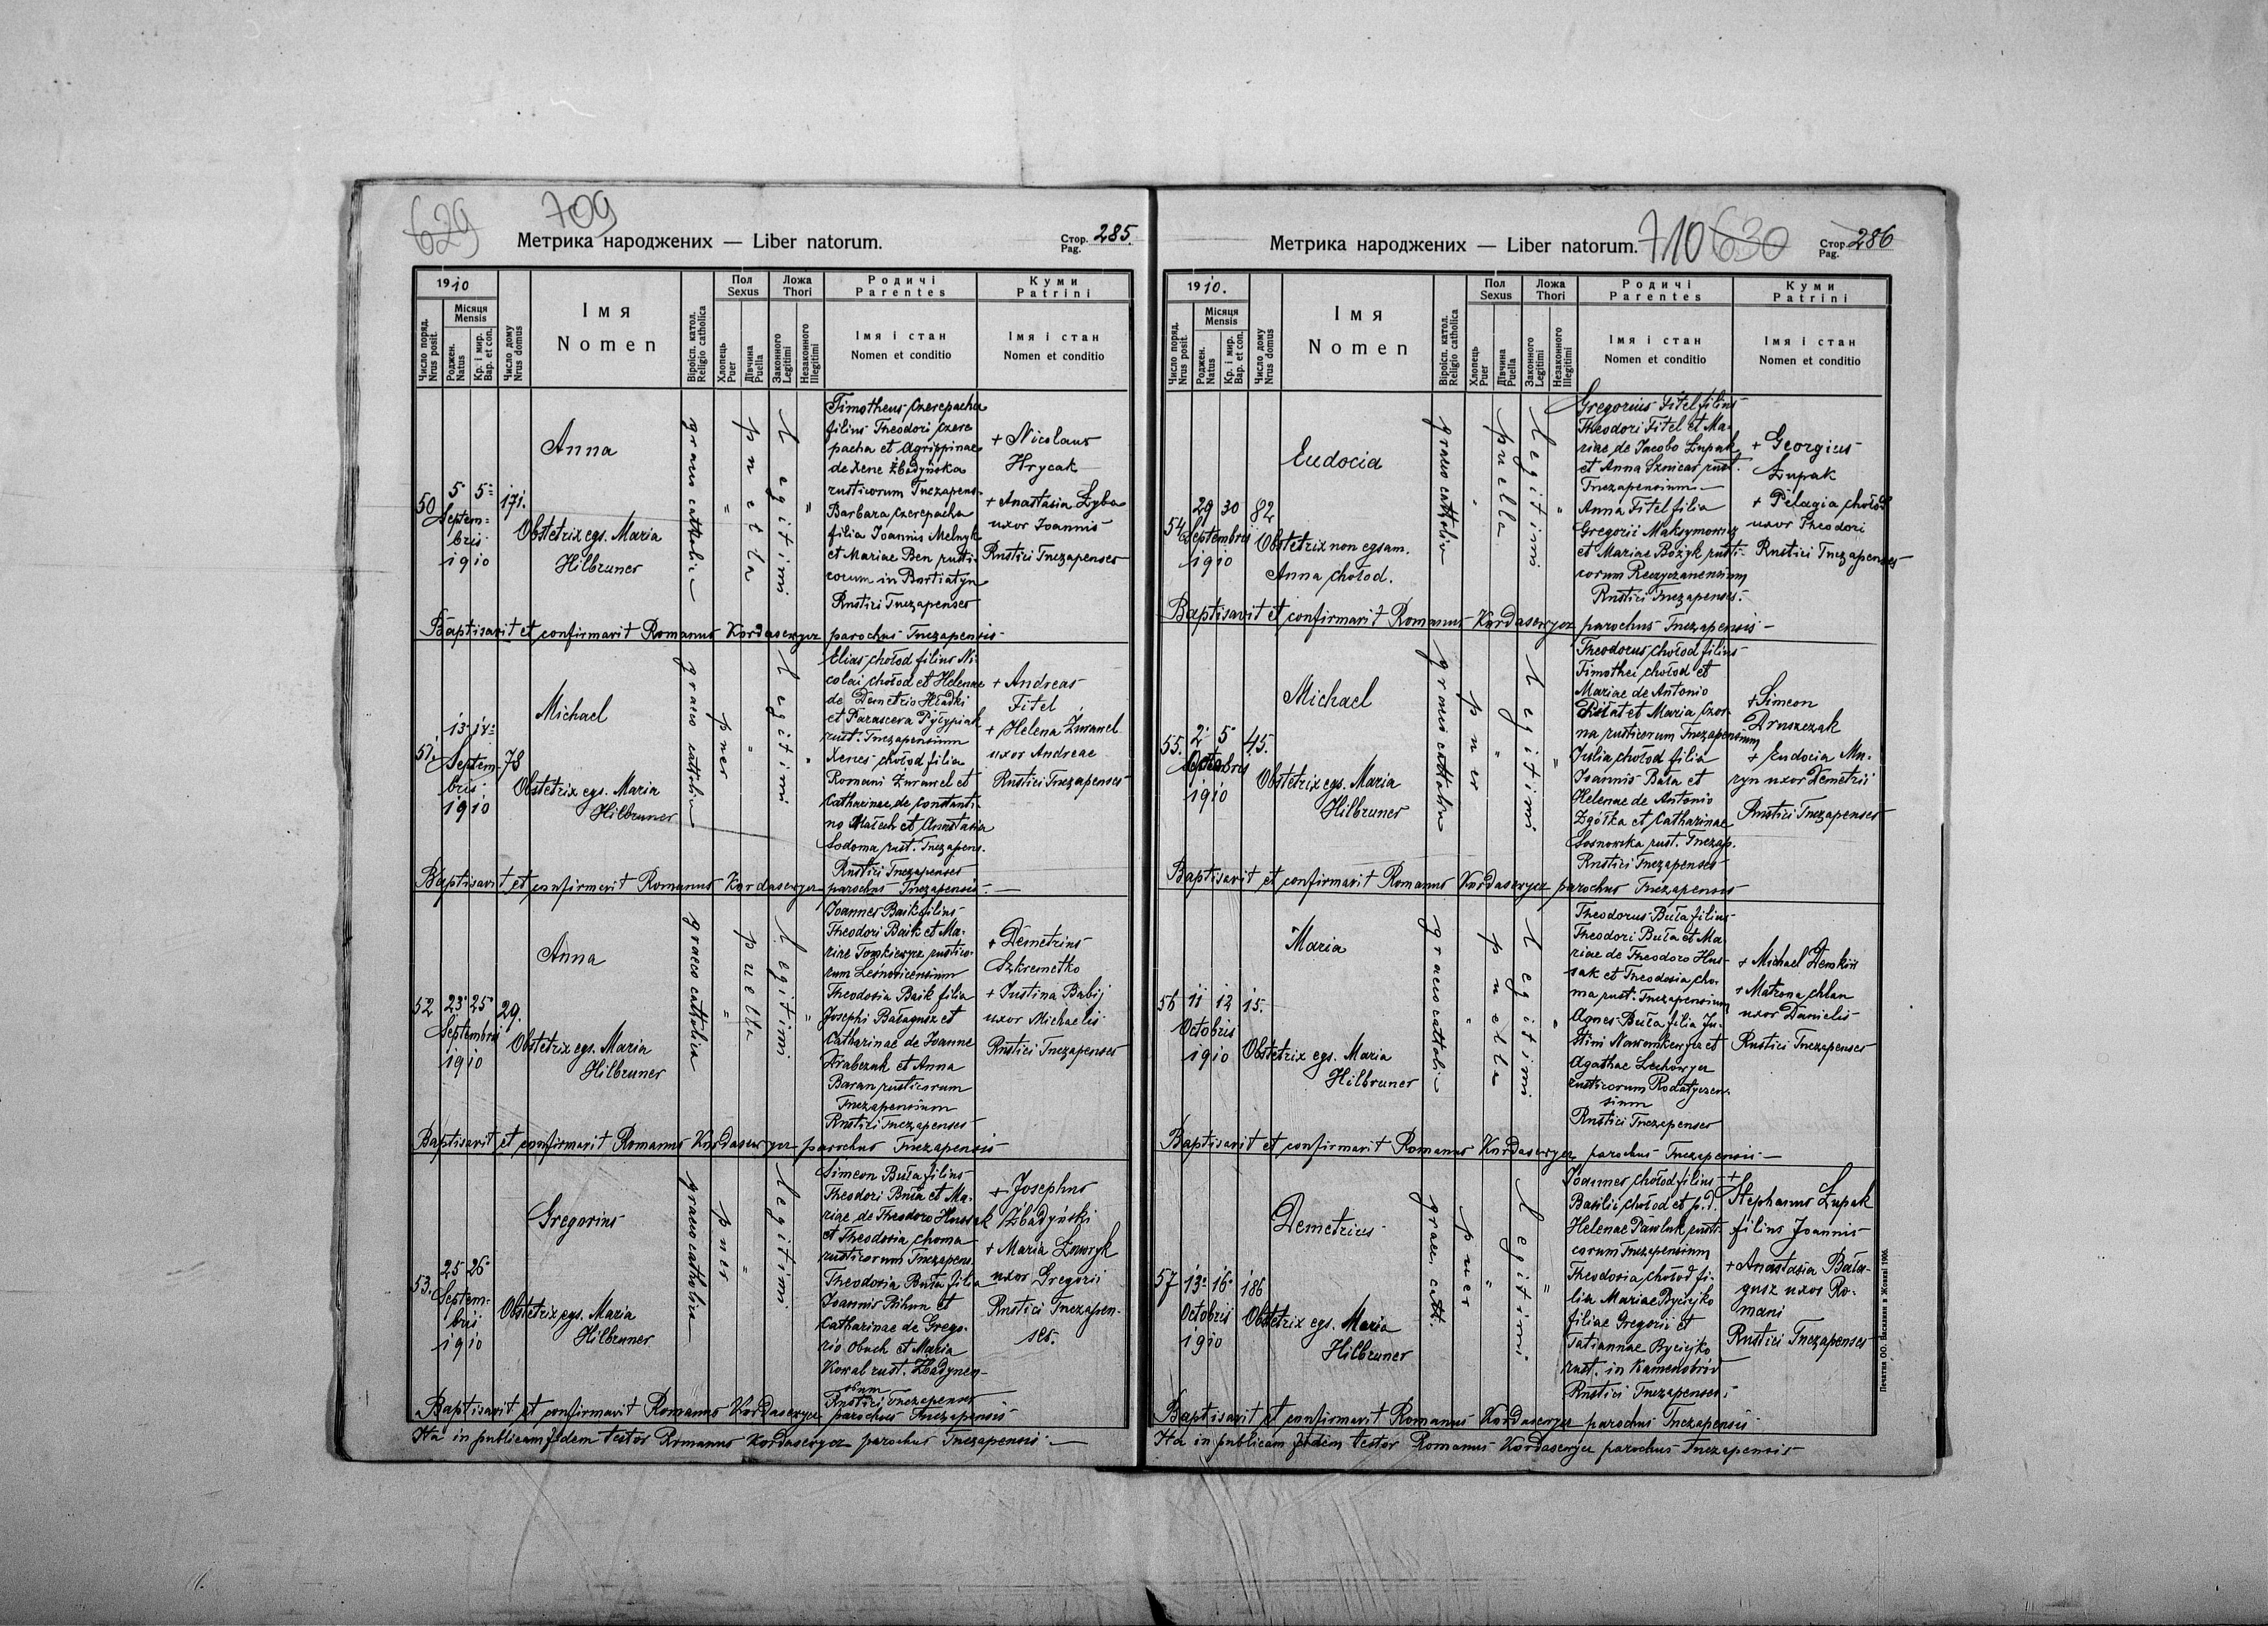 629 709
Метрика народжених — Liber natorum.
Стор. Pag. 285.
1910
Місяця Mensis
Число поряд. Nrus posit.
Роджен. Natus
Кр. і мир. Bap. et con.
Число дому Nrus domus
Імя
Nomen
Віроісп. катол. Religio catholica
Пол Sexus
Хлопець Puer
Дівчина Puella
Ложа Thori
Законного Legitimi
Незаконного Illegitimi
Родичі
Parentes
Імя і стан
Nomen et conditio
Куми
Patrini
Імя і стан
Nomen et conditio
50
5 5
Septem-
bris
1910
171.
Anna
Obstetrix egs. Maria
Hilbruner
graeco catholic
"
puella
Legitimi
"
Timotheus Czerepacha
filius Theodori Czere
pacha et Agrippinae
de Xene Zbadyńska
rusticorum Tuczapens-
Barbara Czerepacha
filia Joannis Melnyk
et Mariae Ben rusti-
corum in Bortiatyn
Rustici Tuczapenses
+ Nicolaus
Hrycak
+ Anastasia Łyba
uxor Joannis
Rustici Tuczapenses
Baptisavit et confirmavit Romanus Kordasewycz parochus Tuczapensis
51.
13 14
Septem-
bris
1910
78
Michael
Obstetrix egs. Maria
Hilbruner
graeco catholic
puer
"
Legitimi
"
Elias Chołod filius Ni-
colai Chołod et Helenae
de Demetrio Hladki
et Parasceva Pyłypiak
rust. Tuczapensium
Xenes Chołod filia
Romani Żurawel et
Catharinae de Constanti-
no Małech et Anastasia
Sodoma rust. Tuczapens.
Rustici Tuczapenses
+ Andreas
Fitel
+ Helena Żurawel
uxor Andreae
Rustici Tuczapenses
Baptisavit et confirmavit Romanus Kordasewycz parochus Tuczapensis
52
23 25
Septembris
1910
29.
Anna
Obstetrix egs. Maria
Hilbruner
graeco catholica
"
puella
Legitimi
"
Joannes Baik filius
Theodori Baik et Ma-
riae Tomkiewycz rustico-
rum Leśnovicensium
Theodosia Baik filia
Josephi Bałagusz et
Catharinae de Joanne
Hrabczak et Anna
Baran rusticorum
Tuczapensium
Rustici Tuczapenses
+ Demetrius
Szkremetko
+ Justina Babij
uxor Michaelis
Rustici Tuczapenses
Baptisavit et confirmavit Romanus Kordasewycz parochus Tuczapensis
53.
25 26
Septem-
bris
1910
Gregorius
Obstetrix egs. Maria
Hilbruner
graeco catholica
puer
"
Legitimi
Simeon Buła filius
Theodori Buła et Ma-
riae de Theodoro Hussak
et Theodosia Choma
rusticorum Tuczapens.
Theodosia Buła filia
Joannis Rihun et
Catharinae de Grego-
rio Obuch et Maria
Kowal rust. Zbadynen-
sium
Rustici Tuczapenses
+ Josephus
Zbadyński
+ Maria Ławryk
uxor Gregorii
Rustici Tuczapen-
ses.
Baptisavit et confirmavit Romanus Kordasewycz parochus Tuczapensis
Ita in publicam fidem testor Romanus Kordasewycz parochus Tuczapensis
Метрика народжених — Liber natorum.
710 630
Стор. Pag. 286
1910.
Місяця Mensis
Число поряд. Nrus posit.
Роджен. Natus
Кр. і мир. Bap. et con.
Число дому Nrus domus
Імя
Nomen
Віроісп. катол. Religio catholica
Пол Sexus
Хлопець Puer
Дівчина Puella
Ложа Thori
Законного Legitimi
Незаконного Illegitimi
Родичі
Parentes
Імя і стан
Nomen et conditio
Куми
Patrini
Імя і стан
Nomen et conditio
54.
29 30
Septembris
1910
82
Eudocia
Obstetrix non egsam.
Anna Chołod.
graeco catholic
"
puella
Legitimi
"
Gregorius Fitel filius
Theodori Fitel et Ma-
riae de Jacobo Łupak
et Anna Sznicar rust.
Tuczapensium
Anna Fitel filia
Gregorii Maksymowicz
et Mariae Bożyk rusti-
corum Reczyczanensium
Rustici Tuczapenses.
+ Georgius
Łupak
+ Pelagia Chołod
uxor Theodori
Rustici Tuczapenses
Baptisavit et confirmavit Romanus Kordasewycz parochus Tuczapensis
55.
2 5
Octobris
1910
45.
Michael
Obstetrix egs. Maria
Hilbruner
graeco catholic
puer
"
Legitimi
"
Theodorus Chołod filius
Timothei Chołod et
Mariae de Antonio
et Maria Czor-
na rusticorum Tuczapensium
Julia Chołod filia
Joannis Buła et
Helenae de Antonio
Zgółka et Catharinae
Sosnowska rust. Tuczap.
Rustici Tuczapenses
+ Simeon
Druszczak
+ Eudocia Mu-
ryn uxor Demetrii
Rustici Tuczapenses
Baptisavit et confirmavit Romanus Kordasewycz parochus Tuczapensis
56
11 12
Octobris
1910
15.
Maria
Obstetrix egs. Maria
Hilbruner
graeco catholic
"
puella
Legitimi
"
Theodorus Buła filius
Theodori Buła et Ma
riae de Theodoro Hus-
sak et Theodosia Cho-
ma rust. Tuczapensium
Agnes Buła filia Ju-
stini Nawomkewycz et
Agathae Lechowycz
rusticorum Rodatyczen-
sium
Rustici Tuczapenses
+ Michael Demkiw
+ Matrona Chlan
uxor Danielis
Rustici Tuczapenses
Baptisavit et confirmavit Romanus Kordasewycz parochus Tuczapensis
57
13 16
Octobris
1910
186
Demetrius
Obstetrix egs. Maria
Hilbruner
graeco cath.
puer
"
Legitimi
"
Joannes Chołod filius
Basilii Chołod et p.d.
Helenae Pawluk rusti-
corum Tuczapensium
Theodosia Chołod fi-
lia Mariae Byciejko
filiae Gregorii et
Tatiannae Byciejko
rust. in Kamenobrod
Rustici Tuczapenses.
+
Stephanus Łupak
filius Joannis
+ Anastasia Bała-
gusz uxor Ro-
mani
Rustici Tuczapenses
Baptisavit et confirmavit Romanus Kordasewycz parochus Tuczapensis
Ita in publicam fidem testor Romanus Kordasewycz parochus Tuczapensis
Печатня ОО. Василиян в Жовкві 1906.